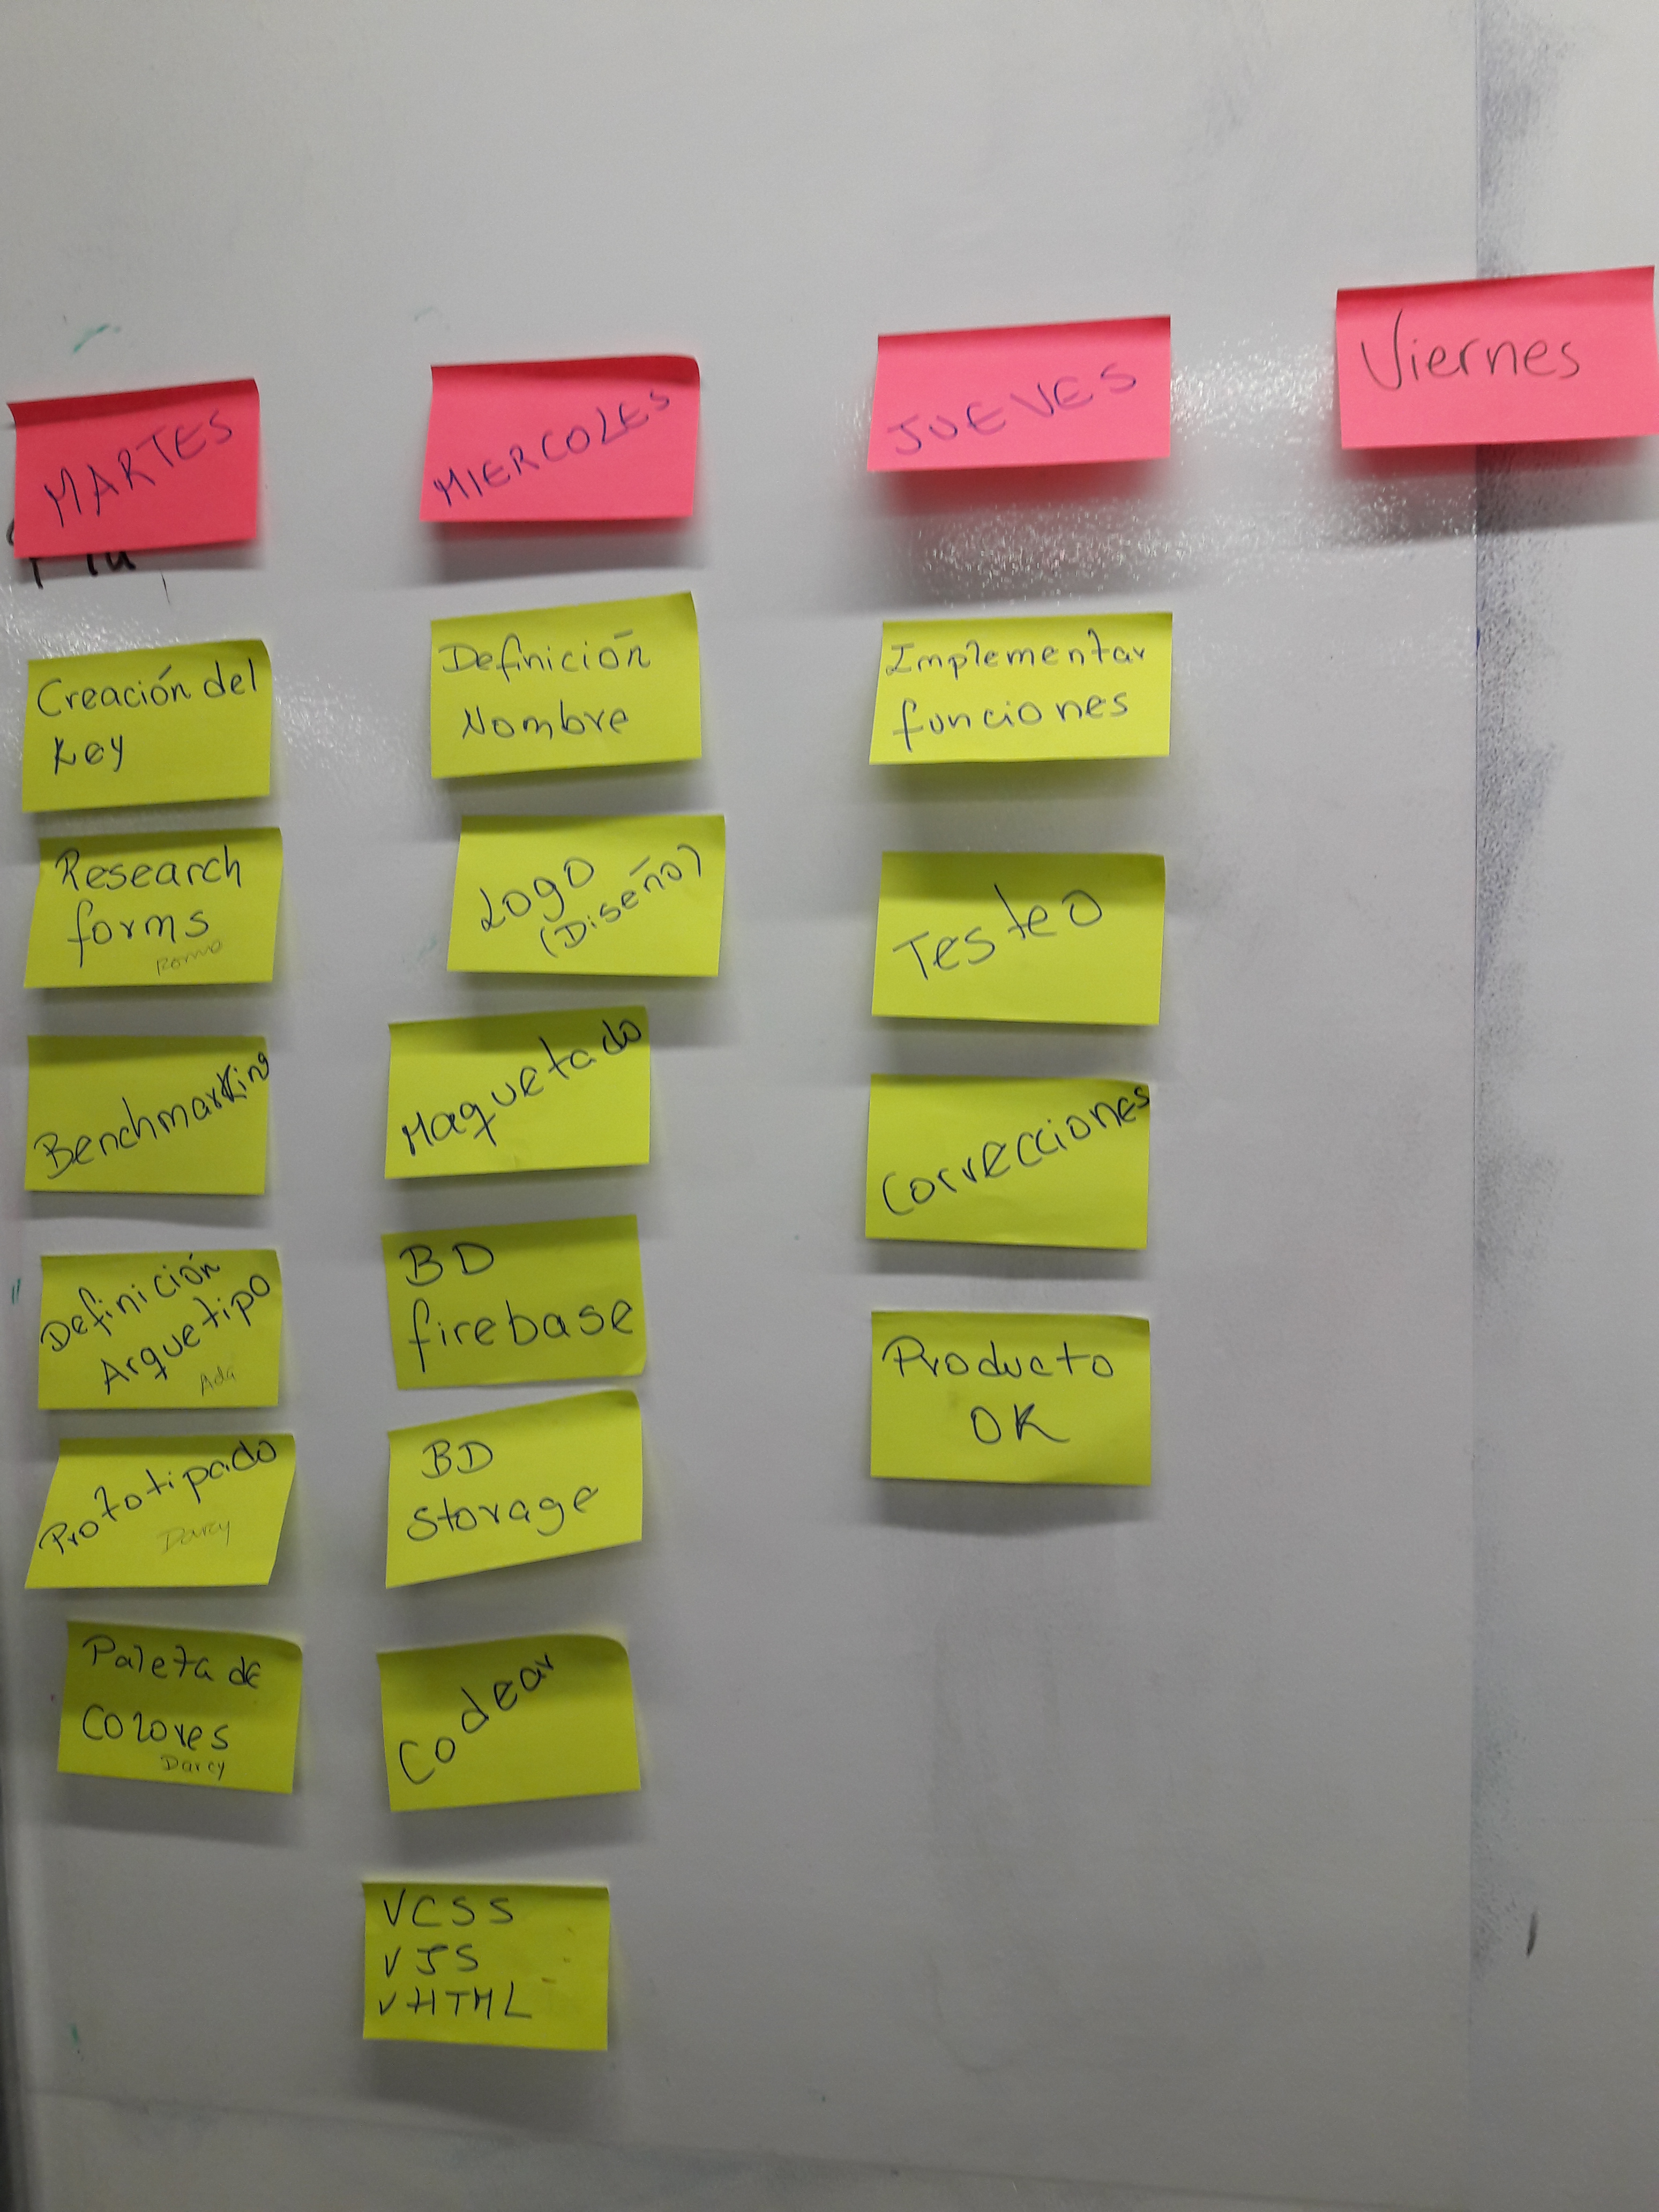 MARTES
Creación del
Key
Research
forms
Benchmarking
Definición
Arquetipo
Ada
Prototipado
Darcy
Paleta de
Colores
Darcy
MIERCOLES
Definición
Nombre
Logo
(Diseño)
Maquetado
BD
firebase
BD
Storage
Codear
✓CSS
✓JS
✓HTML
JUEVES
Implementar
funciones
Testeo
Correcciones
Producto
OK
Viernes